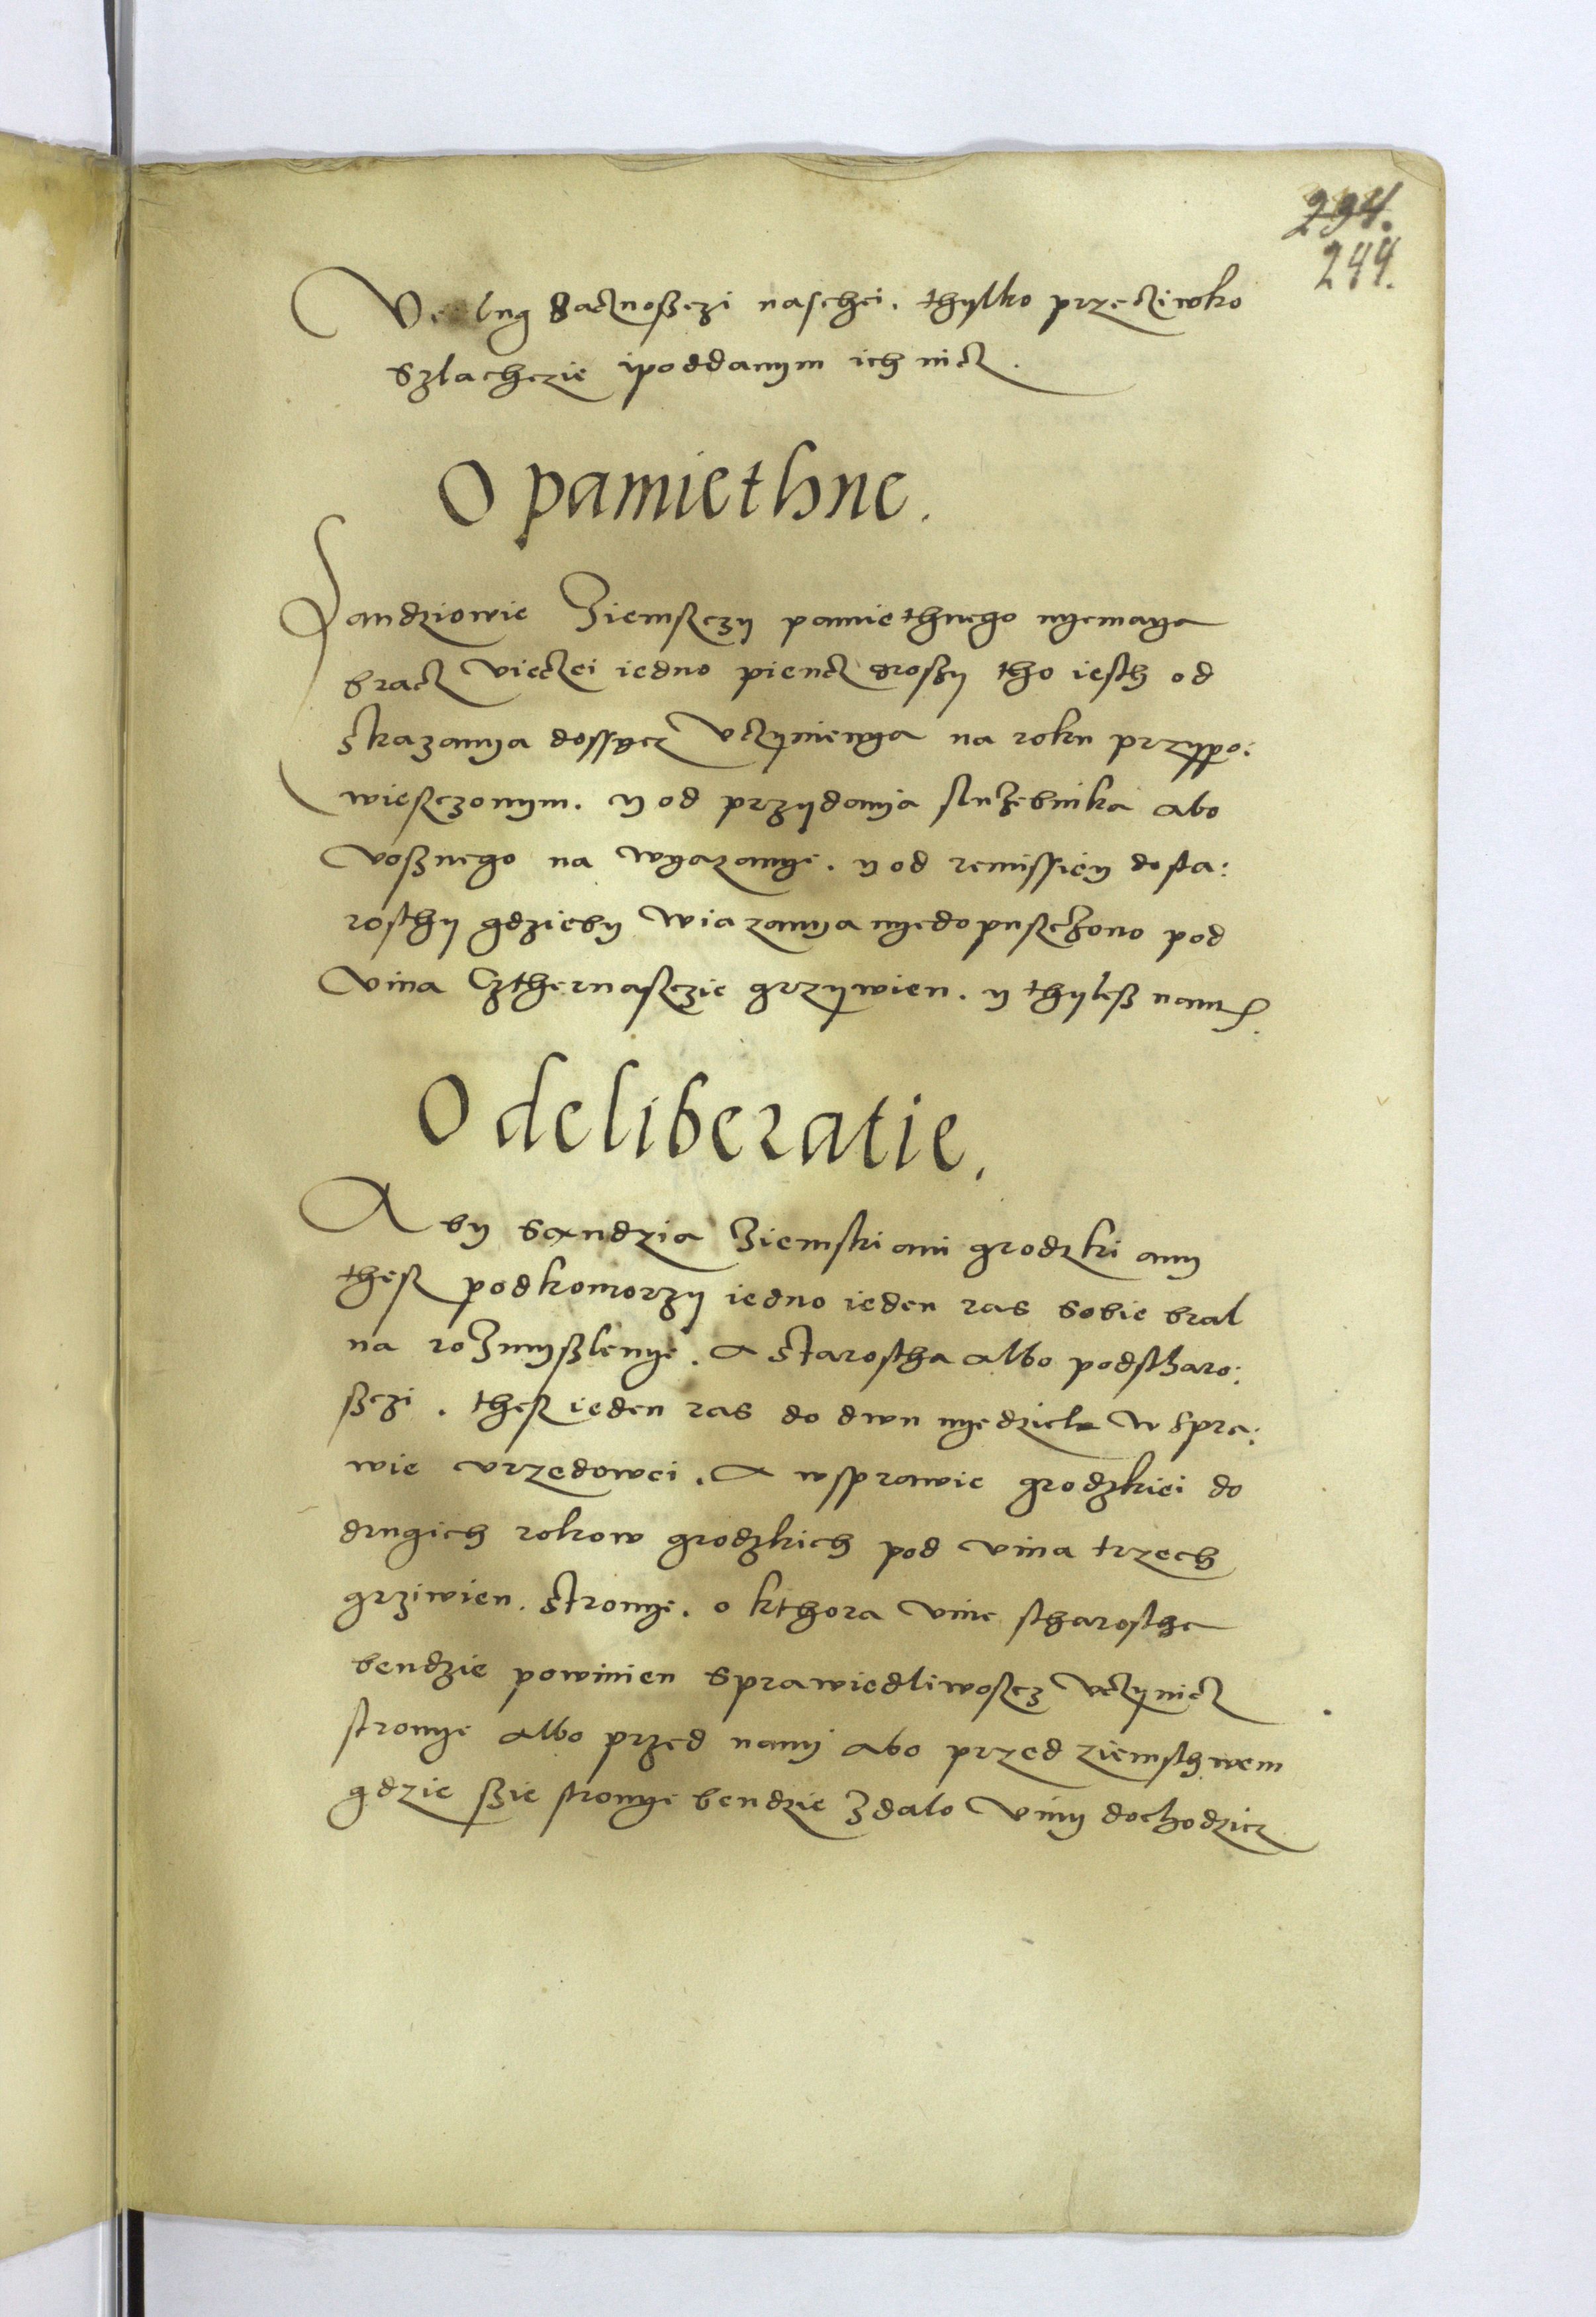 294.
244.
Vedlug baćznosczi naschei. thylko przećziwko
szlachczie ipoddanym ich nićz.
O pamiethne.
Sandziowie Ziemsczy pamiethnego nyemaya
braćz viećzei iedno pienćz groszy tho iesth od
skazanya dossycz vćzynienya na roku przypo:
wiesczonym. y od przydanya sluzebnika abo
voznego na wyazanye. y od remissiey do sta:
rosthy gdzieby wiazanya nyedopusczono pod
vina Czthernasczie grzywien. y thylesz nam
O deliberatie.
Aby sandzia Ziemski ani grodzki any
thesz podkomorzy iedno ieden ras sobie bral
na rozmyslenye. a starostha albo podstharo:
sczi. thesz ieden ras do dwu nyedziel w spra:
wie vrzedowei. a wsprawie grodzkiei do
drugich rokow grodzkich pod vina trzech
grziwien. stronye. o kthora vine stharostha
bendzie powinien sprawiedliwoscz vćzynićz
stronye albo przed namy abo przed ziemsthwem
gdzie szie stronye bendzie zdalo viny dochodzicz